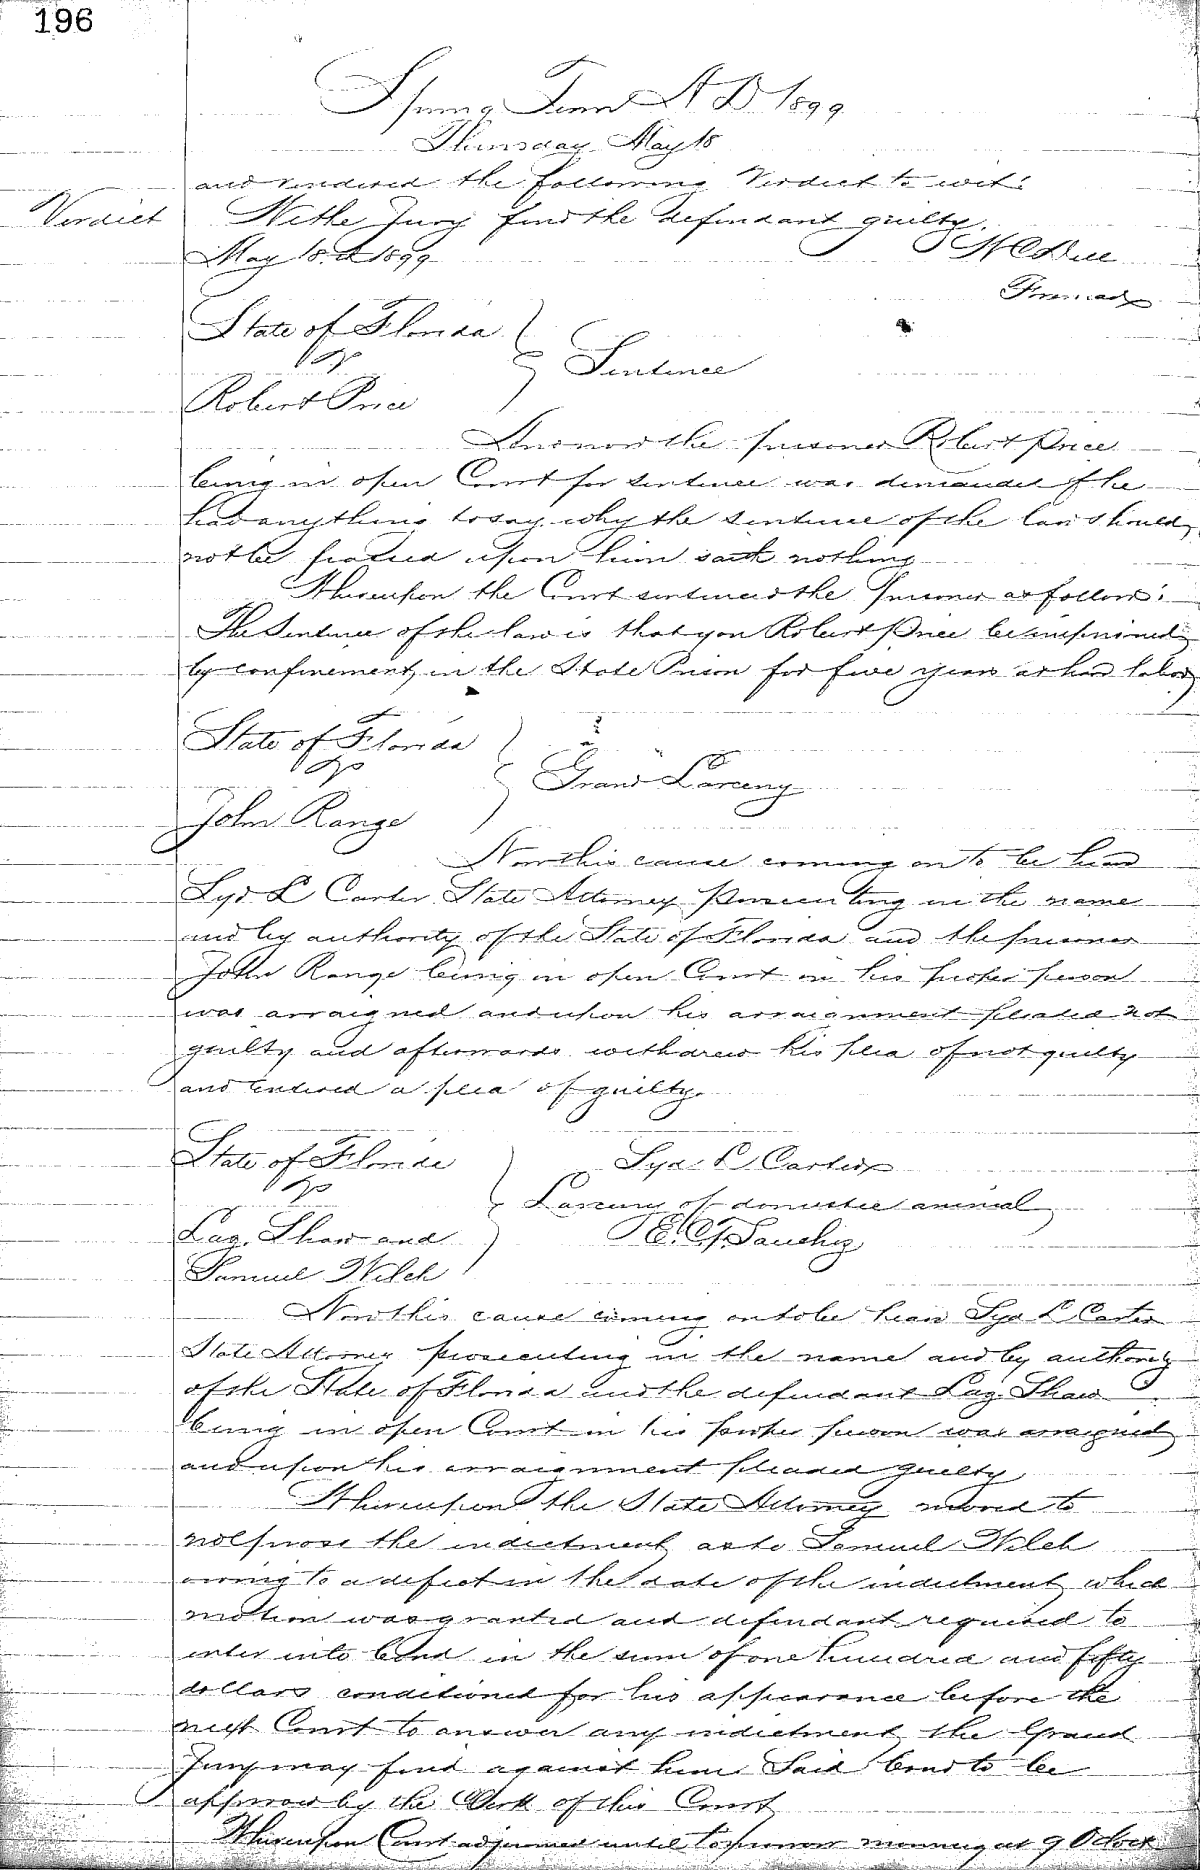 196
Spring Term A D 1899
Thursday May 18
and rendered the following Verdict to wit:
Verdict We the Jury find the defendant guilty.
May 18th 1899
Foreman
State of Florida
vs
Sentence
Robert Price
And now the prisoner Robert Price
being in open Court for sentence was demanded if he
had anything to say why the sentence of the law should
not be passed upon him saith nothing
Whereupon the Court sentenced the Prisoner as follows:
The Sentence of the law is that you Robert Price be imprisoned
by confinement in the State Prison for five years at hard labor
State of Florida
vs
Grand Larceny
John Range
Now this cause coming on to be heard
Syd L Carter State Attorney Prosecuting in the name
and by authority of the State of Florida and the prisoner
John Range being in open Court in his proper person
was arraigned and upon his arraignment pleaded not
guilty and afterwards withdrew his plea of not guilty
and entered a plea of guilty.
State of Florida Syd L Carter
vs
Larceny of domestic animal
Laz. Shaw and E. C. F. Sanchez
Samuel Welch
Now this cause coming on to be heard Syd L Carter
State Attorney prosecuting in the name and by authority
of the State of Florida and the defendant Laz Shaw
being in open Court in his proper person was arraigned
and upon his arraignment pleaded guilty
Whereupon the State Attorney moved to
nol pross the indictment as to Samuel Welch
owing to a defect in the date of the indictment which
motion was granted and defendant required to
enter into bond in the sum of one hundred and fifty
dollars conditioned for his appearance before the
next Court to answer any indictment the Grand
Jury may find against him. Said bond to be
approved by the Clerk of this Court
Whereupon Court adjourned until tomorrow morning at 9 Oclock